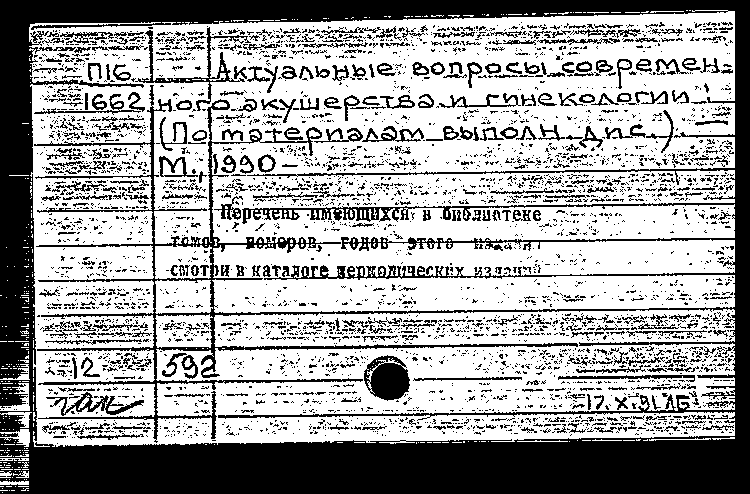 П16 Актуальные вопросы современ-
1662 ного акушерства и гинекологии:
(По материалам выполн. дис.). —
М., 1990 —
Перечень имеющихся в библиотеке
томов, номеров, годов этого издания
смотри в каталоге периодических изданий
12 592
17.X.91